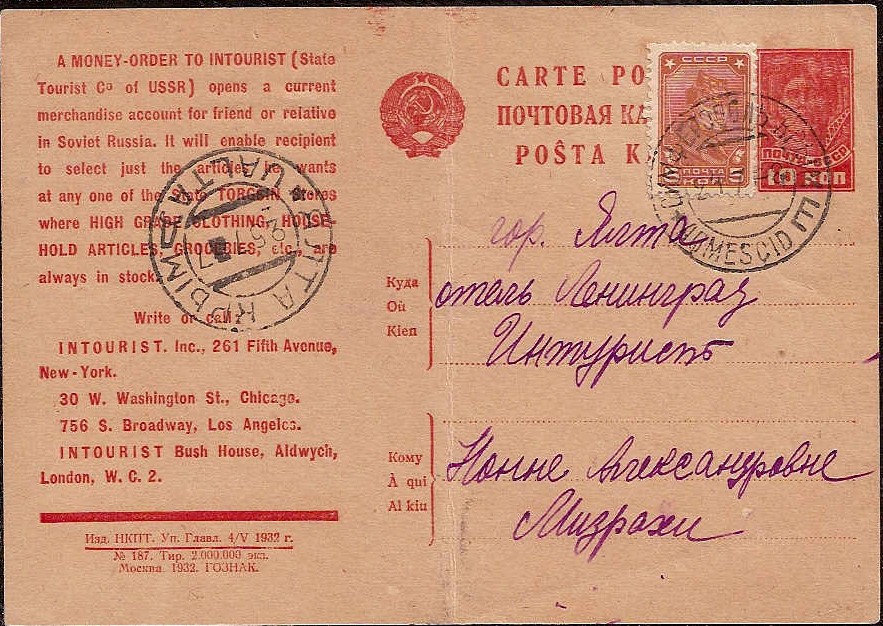 A MONEY-ORDER TO INTOURIST (State
Tourist Co of USSR) opens a current
merchandise account for friend or relative
in Soviet Russia. It will enable recipient
to select just the articles he wants
at any one of the State TORGSIN Stores
where HIGH GRADE CLOTHING, HOUSE-
HOLD ARTICLES, GROCERIES, etc., are
always in stock.
Write or call:
INTOURIST. Inc., 261 Fifth Avenue,
New-York.
30 W. Washington St., Chicago.
756 S. Broadway, Los Angelos.
INTOURIST Bush House, Aldwych,
London, W. C. 2.
Изд. НКПТ. Уп. Главл. 4/V 1932 г.
№ 187. Тир. 2.000.000 экз.
Москва 1932. ГОЗНАК.
CARTE PO
ПОЧТОВАЯ КА
POŜTA K
СССР
ПОЧТА
5 КОП
ПОЧТА СССР
10 КОП
ЯЛТА КРЫМ
JALTA
Куда
Où
Kien
гор. Ялта
отель Ленинград
Интуристъ
Кому
À qui
Al kiu
Нонне Александровне
Мизрахи